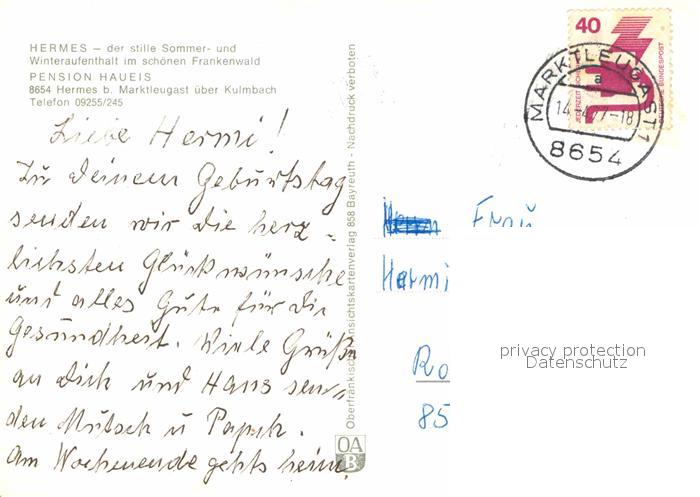 HERMES — der stille Sommer- und
Winteraufenthalt im schönen Frankenwald
PENSION HAUEIS
8654 Hermes b. Marktleugast über Kulmbach
Telefon 09255/245
Liebe Hermi!
Zu Deinem Geburtstag
senden wir die herz-
lichsten Glückwünsche
und alles Gute für die
Gesundheit. Viele Grüße
an Dich und Hans sen-
den Mutsch u Papsch.
Am Wochenende gehts heim.
Oberfränkischer Ansichtskartenverlag 858 Bayreuth - Nachdruck verboten
OA
B
40
JEDERZEIT SICHERHEIT
DEUTSCHE BUNDESPOST
MARKTLEUGAST 1
a
77-18
8654
Frau
Hermi
Ro
85
privacy protection
Datenschutz